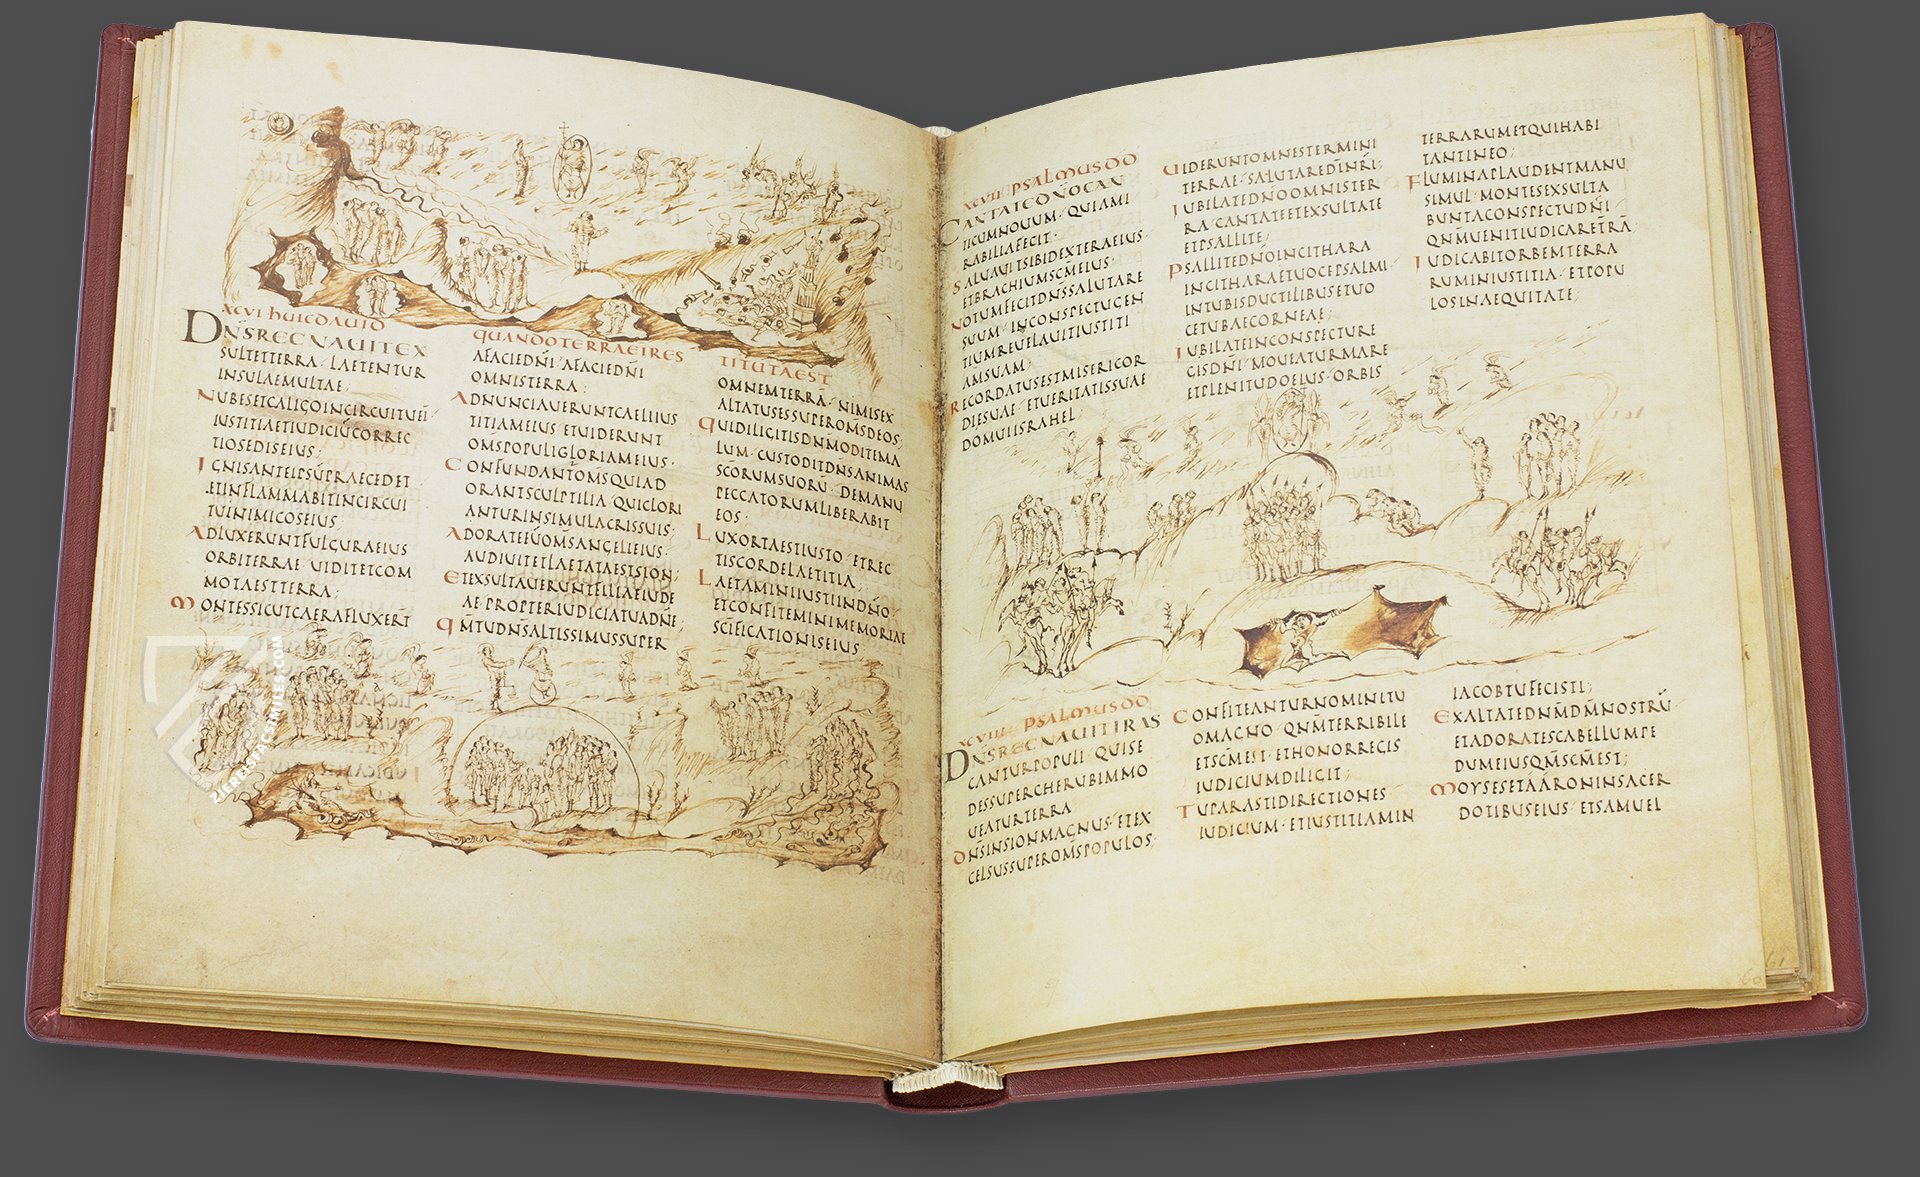 XCVI HUIC DAUID
DN̄SREGNAUITEX
SULTETTERRA · LAETENTUR
INSULAEMULTAE;
NUBESETCALIGOINCIRCUITUEI͞
IUSTITIAETIUDICIŪCORREC
TIOSEDISEIUS;
IGNISANTEIPSŪPRAECEDET
ETINFLAMMABITINCIRCUI
TUINIMICOSEIUS;
ADLUXERUNTFULGURAEIUS
ORBITERRAE · UIDITETCOM
MOTAESTTERRA;
MONTESSICUTCAERAFLUXERT̄
QUANDOTERRAEIRES
AFACIEDN̄I · AFACIEDN̄I
OMNISTERRA;
ADNUNCIAUERUNTCAELIIUS
TITIAMEIUS · ETUIDERUNT
OMS̄POPULIGLORIAMEIUS·
CONFUNDANT̄OMS̄QUIAD
ORANTSCULPTILIA · QUIGLORI
ANTURINSIMULACRISSUIS;
ADORATEEŪOMS̄ANGELIEIUS·
AUDIUITETLAETATAESTSION;
ETEXSULTAUERUNTFILIAEIUDE
AE·PROPTERIUDICIATUADN̄E;
QM̄TUDN̄SALTISSIMUSSUPER
TITUTAEST
OMNEMTERRA · NIMISEX
ALTATUSESSUPEROMS̄DEOS;
QUIDILIGITISDN̄MODITEMA
LUM · CUSTODITDN̄SANIMAS
SC̄ORUMSUORŪ · DEMANU
PECCATORUMLIBERABIT
EOS·
LUXORTAESTIUSTO · ETREC
TISCORDELAETITIA;
LAETAMINIIUSTIINDN̄O·
ETCONFITEMINIMEMORIAE
SC̄IFICATIONISEIUS
ZIEREISFACSIMILES.COM
XCVII PSALMUSDD
CANTATEDN̄OCAN
TICUMNOUUM · QUIAMI
RABILIAFECIT·
SALUAUITSIBIDEXTERAEIUS·
ETBRACHIUMSC̄MEIUS;
NOTUMFECITDN̄SSALUTARE
SUUM · INCONSPECTUGEN
TIUMREUELAUITIUSTITI
AMSUAM;
RECORDATUSESTMISERICOR
DIESUAE · ETUERITATISSUAE
DOMUIISRAHEL;
UIDERUNTOMNESTERMINI
TERRAE·SALUTAREDN̄INR̄I;
IUBILATEDN̄OOMNISTER
RA·CANTATEETEXSULTATE
ETPSALLITE;
PSALLITEDN̄OINCITHARA
INCITHARAETUOCEPSALMI·
INTUBISDUCTILIBUSETUO
CETUBAECORNEAE;
IUBILATEINCONSPECTURE
GISDN̄I·MOUEATURMARE
ETPLENITUDOEIUS·ORBIS
TERRARUMETQUIHABI
TANTINEO;
FLUMINAPLAUDENTMANU
SIMUL·MONTESEXSULTA
BUNTACONSPECTUDN̄I·
QN̄MUENITIUDICARETR̄Ā
IUDICABITORBEMTERRA
RUMINIUSTITIA·ETPOPU
LOSINAEQUITATE;
XCVIII PSALMUSDD
DN̄SREGNAUITIRAS
CANTURPOPULI·QUISE
DESSUPERCHERUBIMMO
UEATURTERRA
DN̄SINSIONMAGNUS·ETEX
CELSUSSUPEROMS̄POPULOS;
CONFITEANTURNOMINITU
OMAGNO·QN̄MTERRIBILE
ETSC̄MEST·ETHONORREGIS
IUDICIUMDILIGIT;
TUPARASTIDIRECTIONES·
IUDICIUM·ETIUSTITIAMIN
IACOBTUFECISTI;
EXALTATEDN̄MDM̄NOSTRŪ·
ETADORATESCABELLUMPE
DUMEIUSQM̄SC̄MEST;
MOYSESETAARONINSACER
DOTIBUSEIUS·ETSAMUEL
60
61